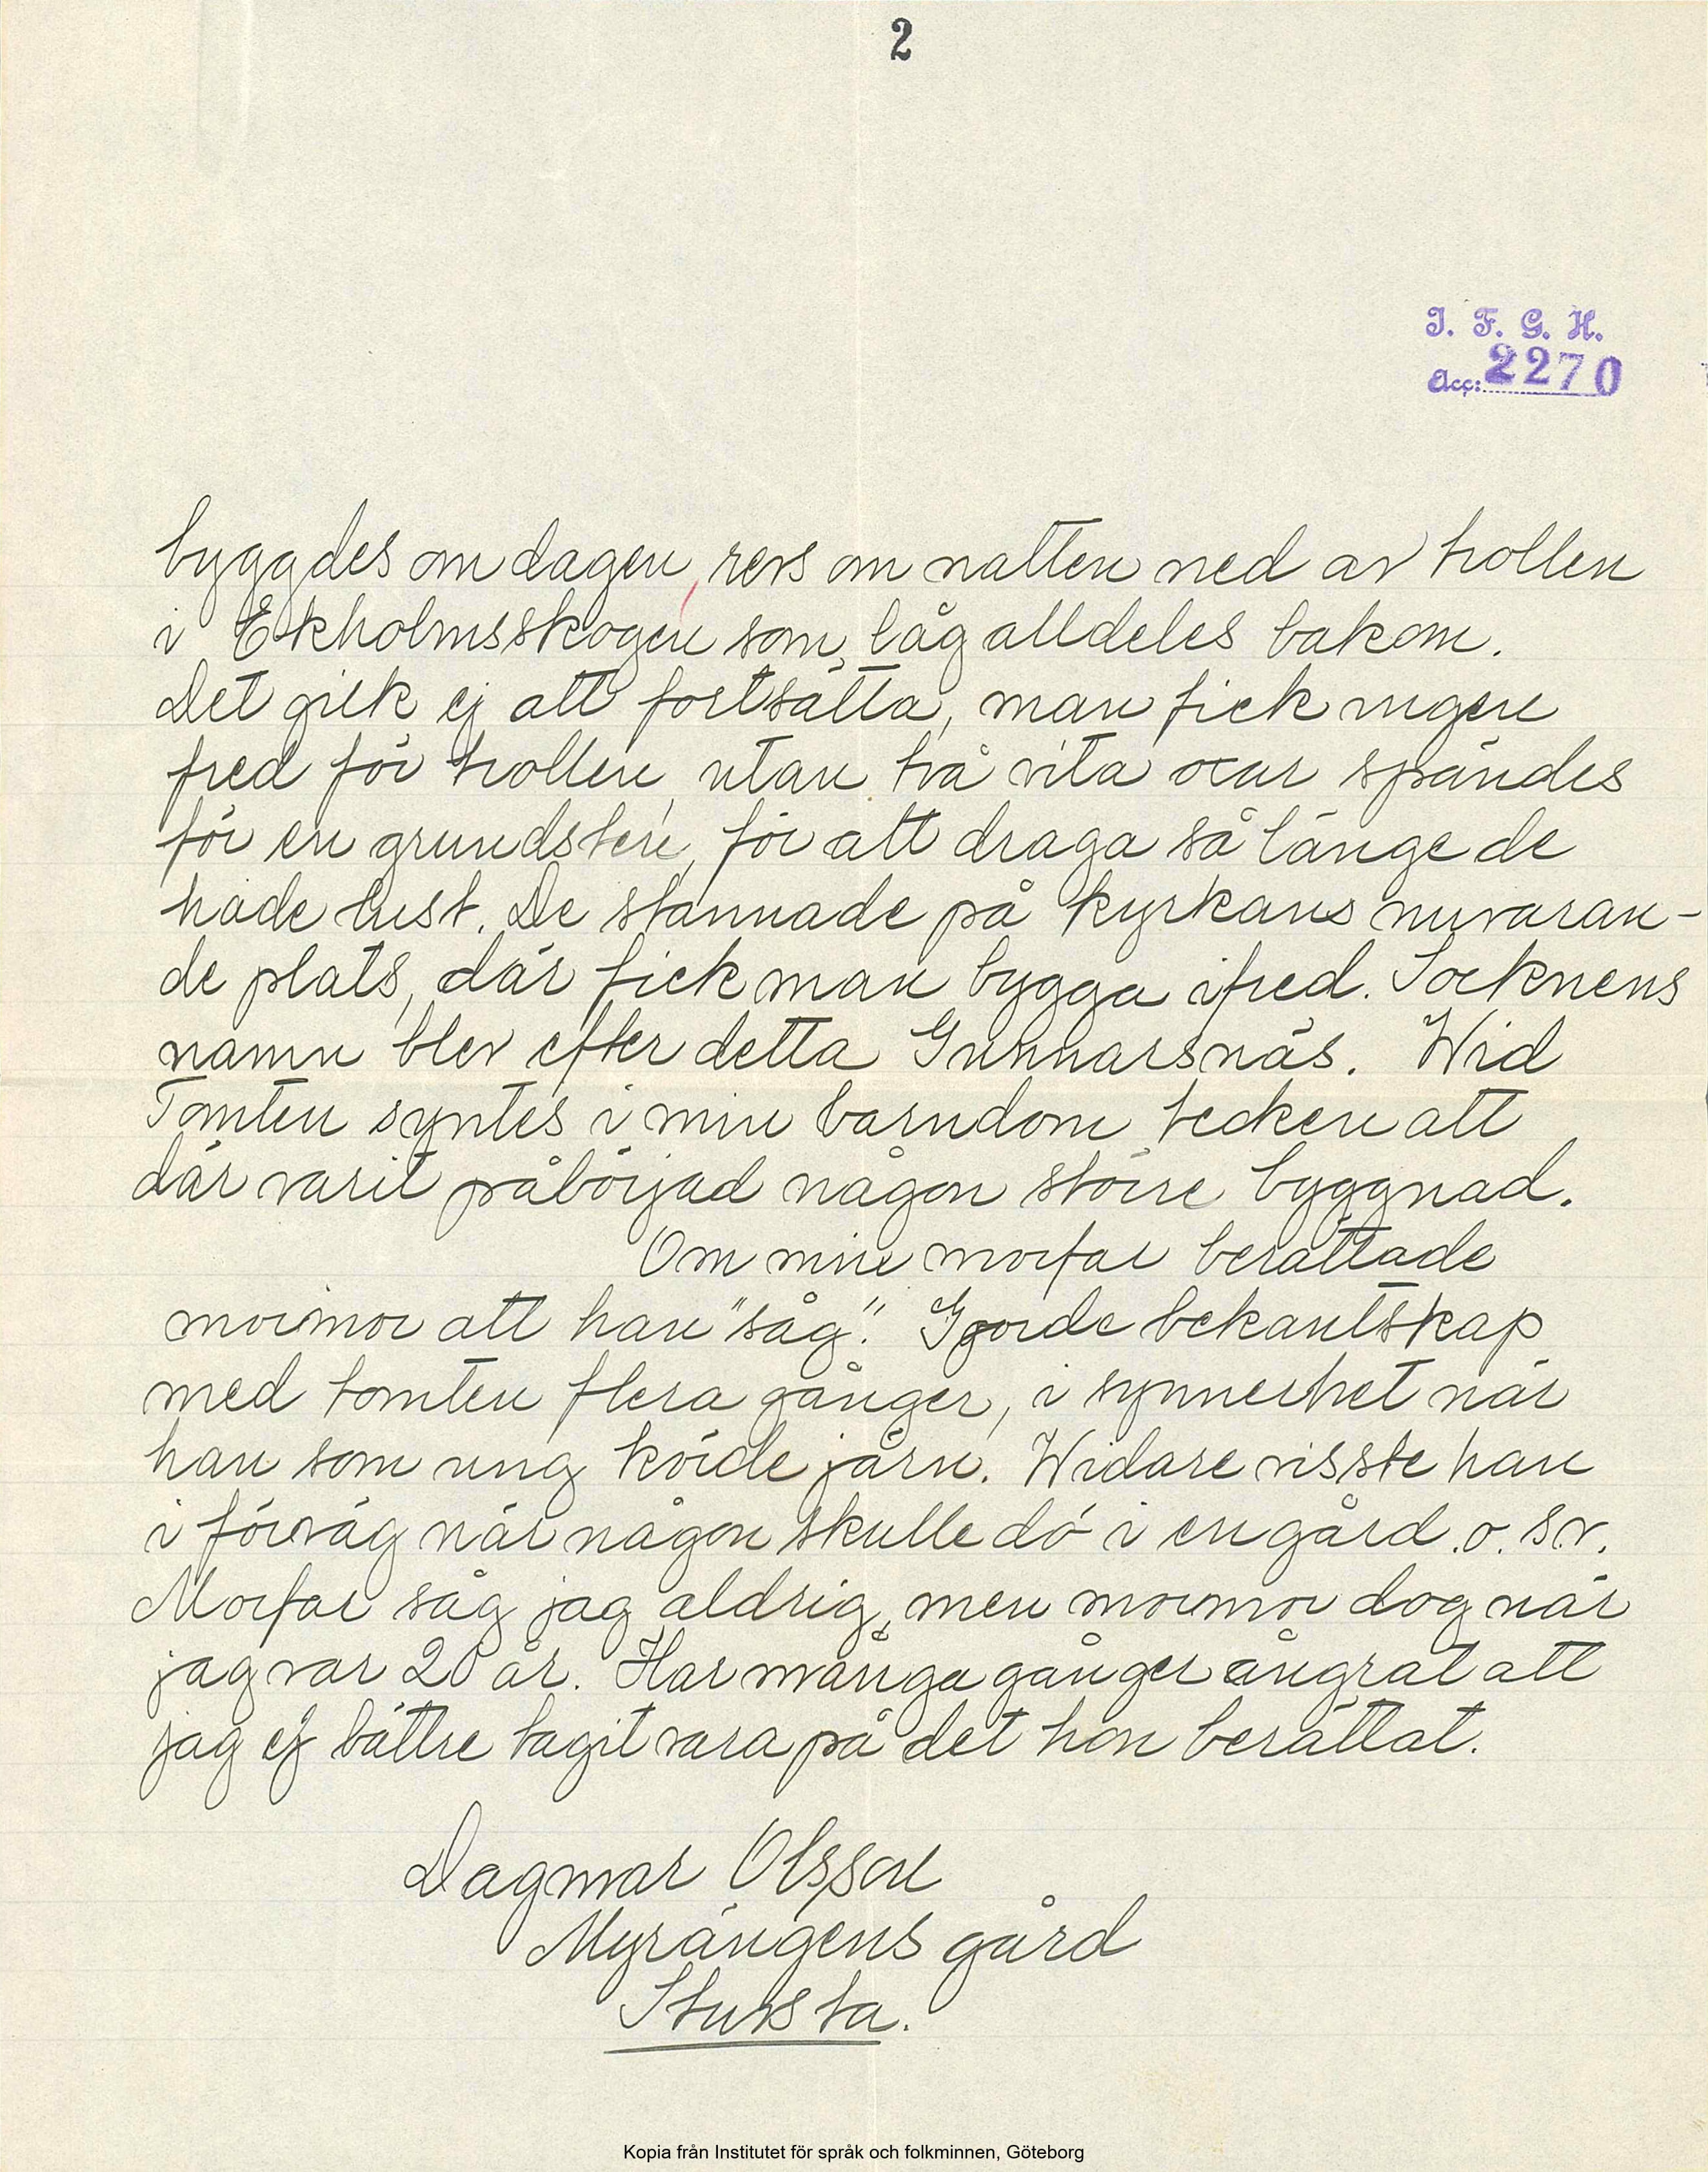 2
I. F. G. H.
Acc: 2270
byggdes om dagen, revs om natten ned av trollen
i Ekholmsskogen som låg alldeles bakom.
Det gick ej att fortsätta, man fick ingen
fred för trollen, utan två vita oxar spändes
för en grundsten, för att draga så länge de
hade lust. De stannade på kyrkans nuvaran-
de plats, där fick man bygga ifred. Socknens
namn blev efter detta Gunnarsnäs. Wid
Tomten syntes i min barndom tecken att
där varit påbörjad någon större byggnad.
Om min morfar berättade
mormor att han "såg". Gjorde bekantskap
med tomten flera gånger, i synnerhet när
han som ung körde järn. Widare visste han
i förväg när någon skulle dö i en gård o. s.v.
Morfar såg jag aldrig, men mormor dog när
jag var 20 år. Har många gånger ångrat att
jag ej bättre tagit vara på det hon berättat.
Dagmar Olsson
Myrängens gård
Stursta.
Kopia från Institutet för språk och folkminnen, Göteborg